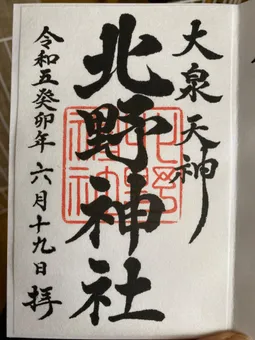 大泉天神
北野神社
令和五癸卯年 六月十九日 拝